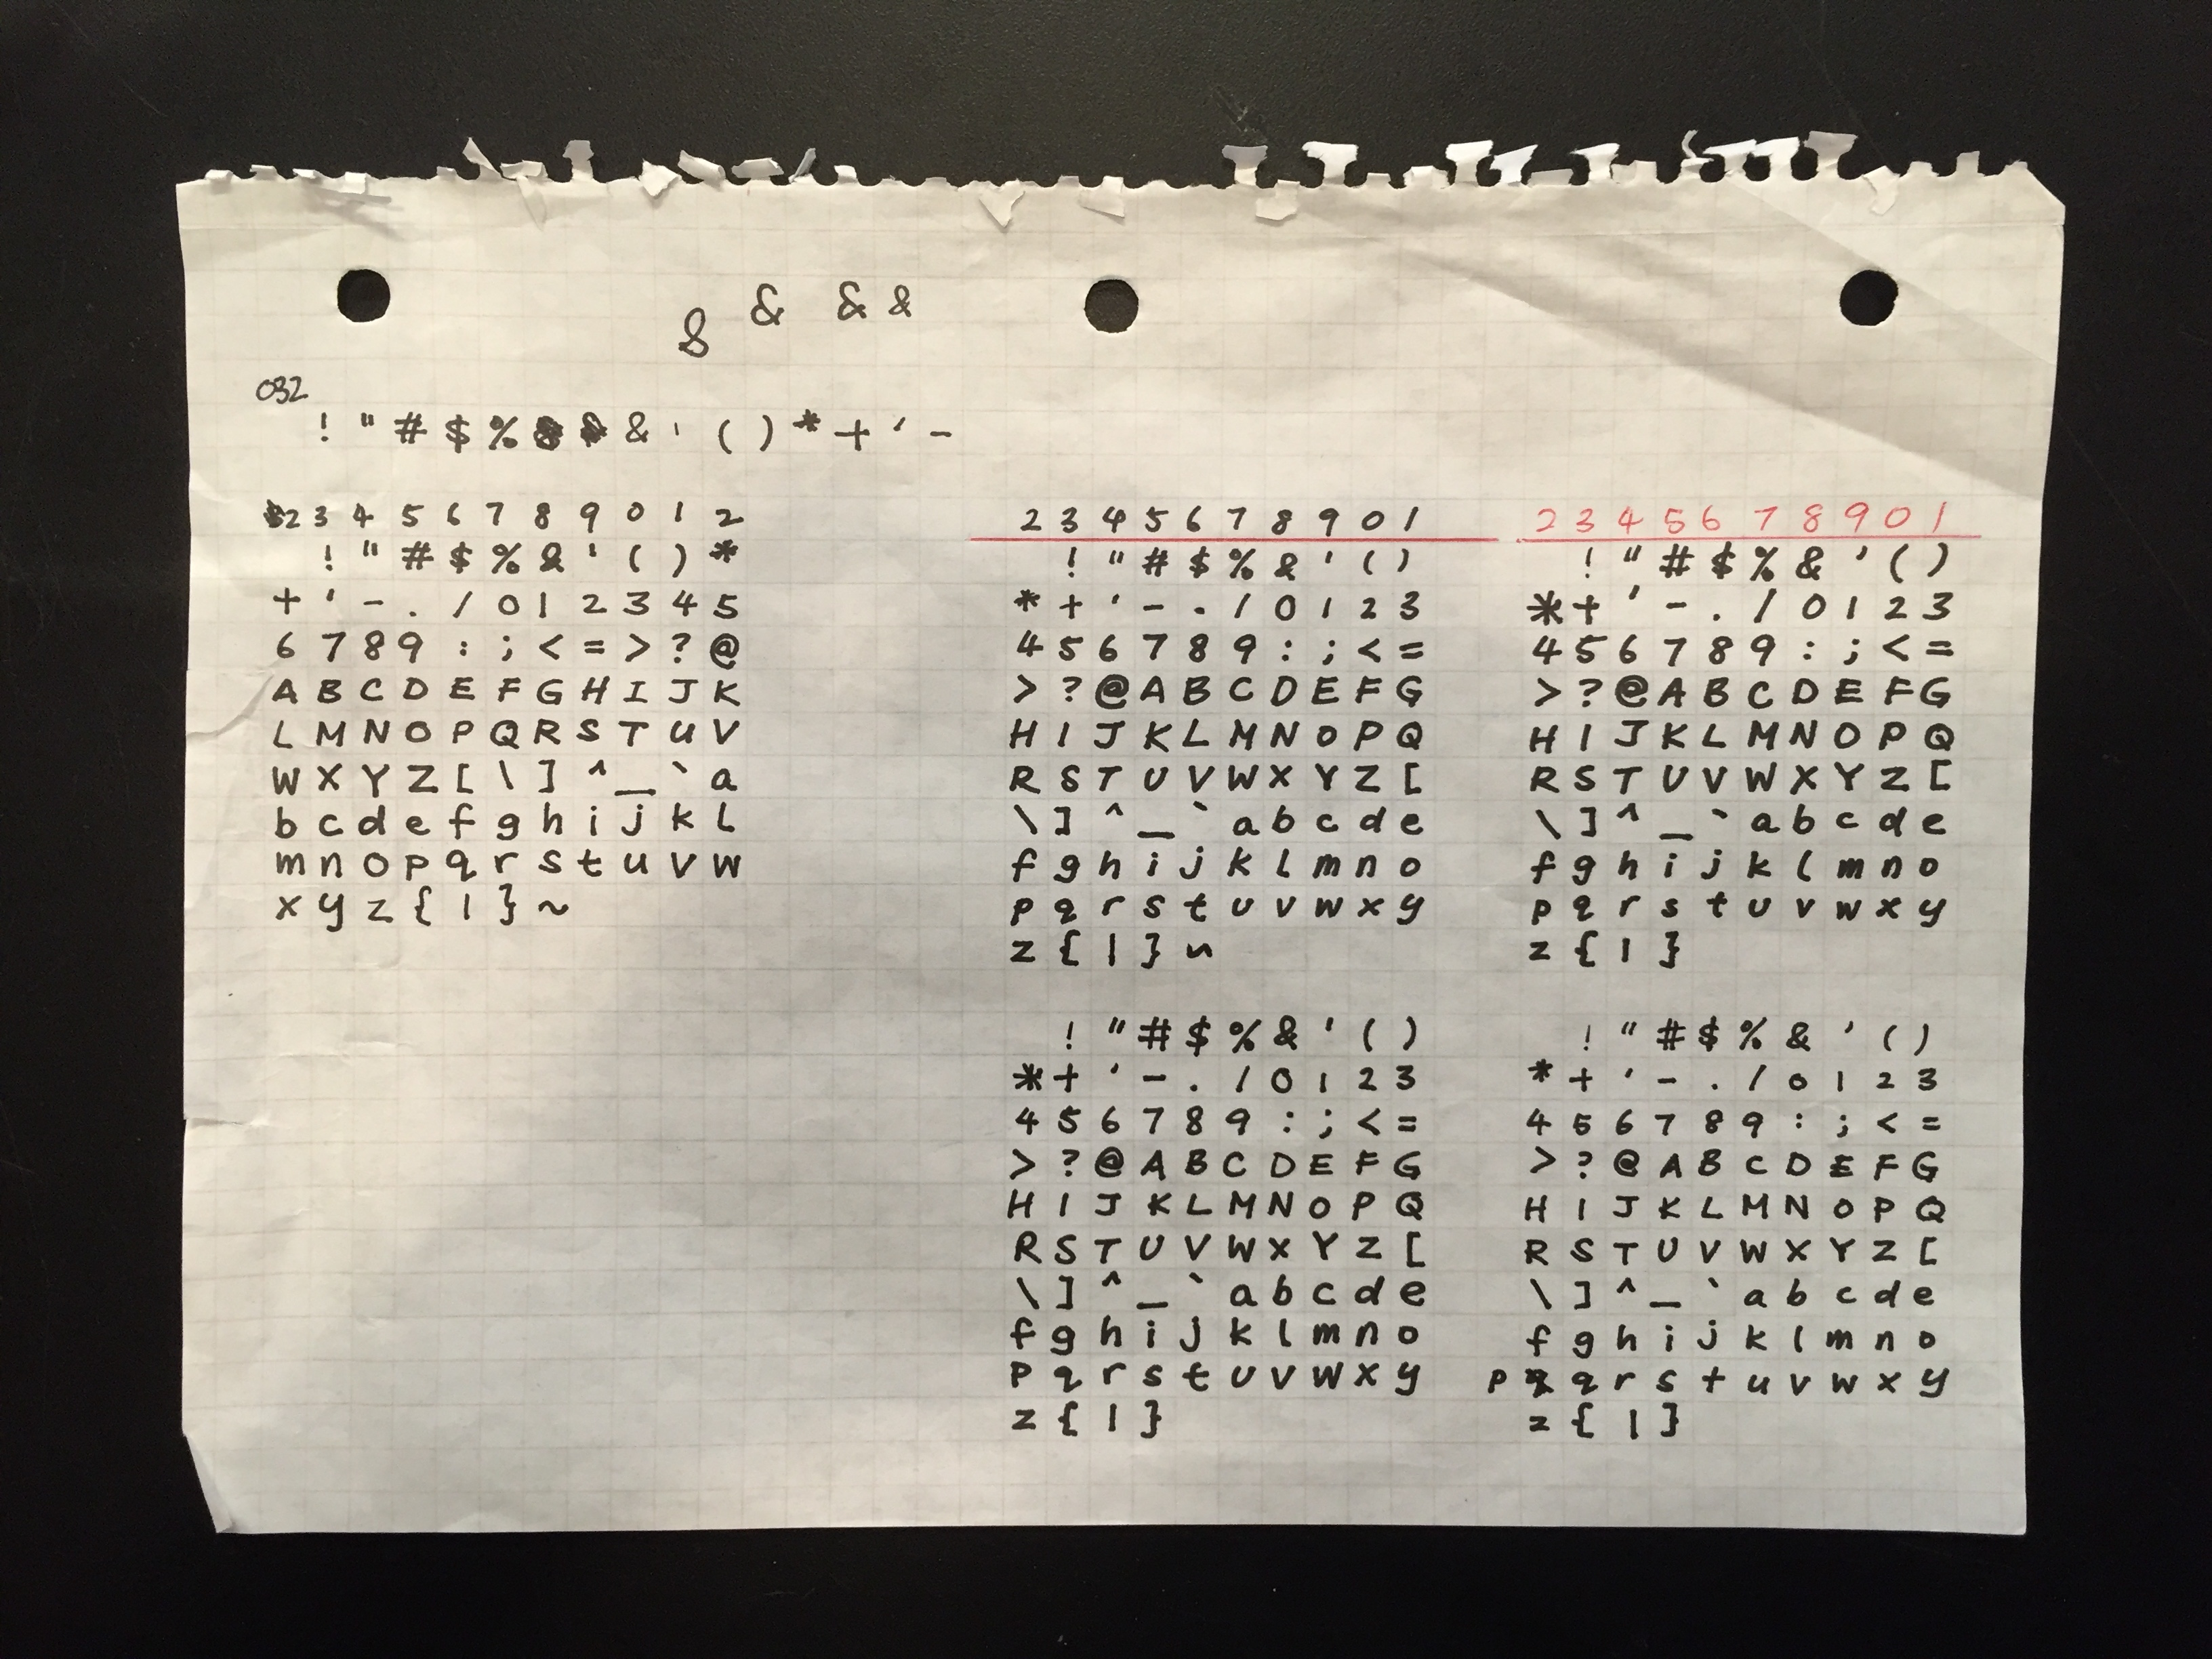 & & & &
032
! " # $ % & ' ( ) * + ' -
2 3 4 5 6 7 8 9 0 1 2
! " # $ % & ' ( ) *
+ ' - . / 0 1 2 3 4 5
6 7 8 9 : ; < = > ? @
A B C D E F G H I J K
L M N O P Q R S T U V
W X Y Z [ \ ] ^ _ ` a
b c d e f g h i j k l
m n o p q r s t u v w
x y z { | } ~
2 3 4 5 6 7 8 9 0 1
! " # $ % & ' ( )
* + ' - . / 0 1 2 3
4 5 6 7 8 9 : ; < =
> ? @ A B C D E F G
H I J K L M N O P Q
R S T U V W X Y Z [
\ ] ^ _ ` a b c d e
f g h i j k l m n o
p q r s t u v w x y
z { | } ~
! " # $ % & ' ( )
* + ' - . / 0 1 2 3
4 5 6 7 8 9 : ; < =
> ? @ A B C D E F G
H I J K L M N O P Q
R S T U V W X Y Z [
\ ] ^ _ ` a b c d e
f g h i j k l m n o
p q r s t u v w x y
z { | }
2 3 4 5 6 7 8 9 0 1
! " # $ % & ' ( )
* + ' - . / 0 1 2 3
4 5 6 7 8 9 : ; < =
> ? @ A B C D E F G
H I J K L M N O P Q
R S T U V W X Y Z [
\ ] ^ _ ` a b c d e
f g h i j k l m n o
p q r s t u v w x y
z { | }
! " # $ % & ' ( )
* + ' - . / 0 1 2 3
4 5 6 7 8 9 : ; < =
> ? @ A B C D E F G
H I J K L M N O P Q
R S T U V W X Y Z [
\ ] ^ _ ` a b c d e
f g h i j k l m n o
p q r s t u v w x y
z { | }